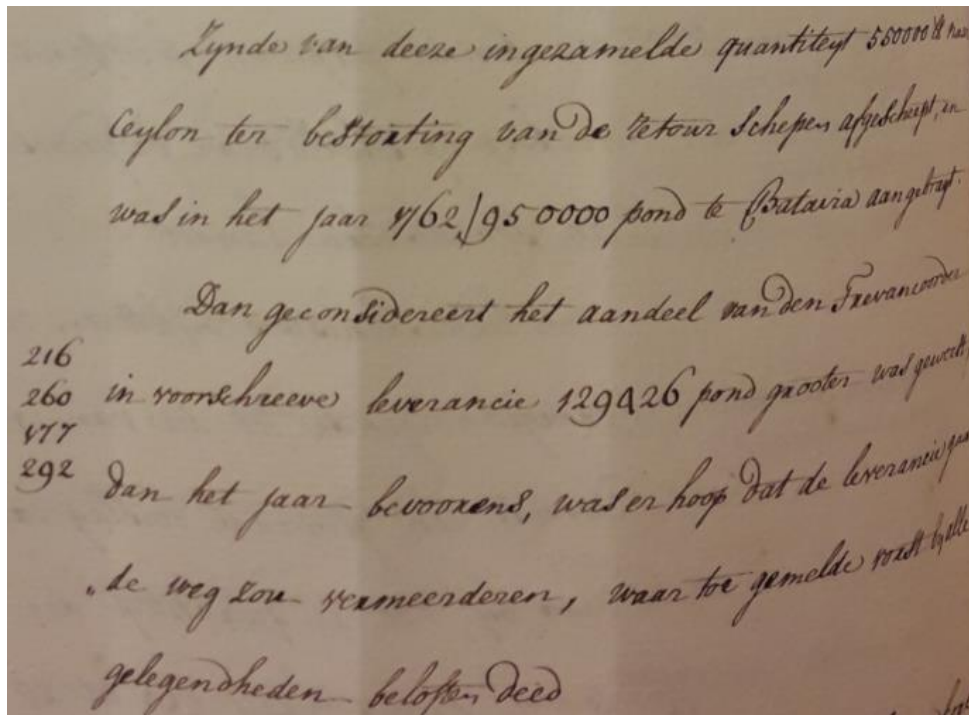 Zynde van deeze ingezamelde quantiteyt 550000 lb naar
Ceylon ter bestorting van de retour schepen afgescheept, en
was in het jaar 1762/950000 pond te Batavia aangebragt.
Dan geconsidereert het aandeel van den Trevancoorder
216
260 in voorschreeve leverancie 129426 pond grooter was geweest,
177
292 dan het jaar bevoorens, was er hoop dat de leverancie gaan
„de weg zou vermeerderen, waar toe gemelde vorst by alle
gelegendheden beloften deed